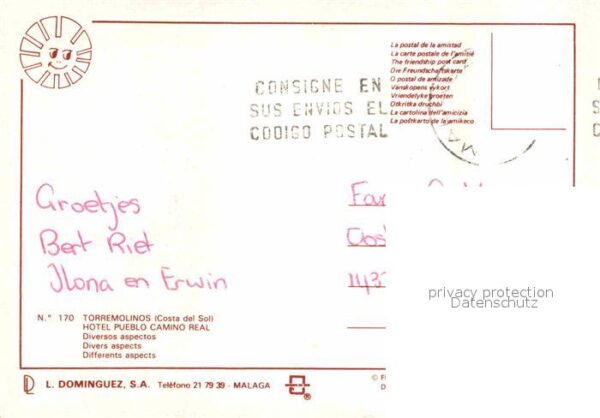 La postal de la amistad
La carte postale de l'amitié
The friendship post card
Die Freundschaftskarte
O postal de amizade
Vänskapens vykort
Vriendelyke groeten
Otkritka druchbi
La cartolina dell'amicizia
La poŝtkarto de la amikeco
CONSIGNE EN
SUS ENVIOS EL
CODIGO POSTAL
MA
Groetjes
Bert Riet
Ilona en Erwin
Fa
Oos
1435
privacy protection
Datenschutz
N.° 170 TORREMOLINOS (Costa del Sol)
HOTEL PUEBLO CAMINO REAL
Diversos aspectos
Divers aspects
Differents aspects
L. DOMINGUEZ, S.A. Teléfono 21 79 39 - MALAGA
©
D